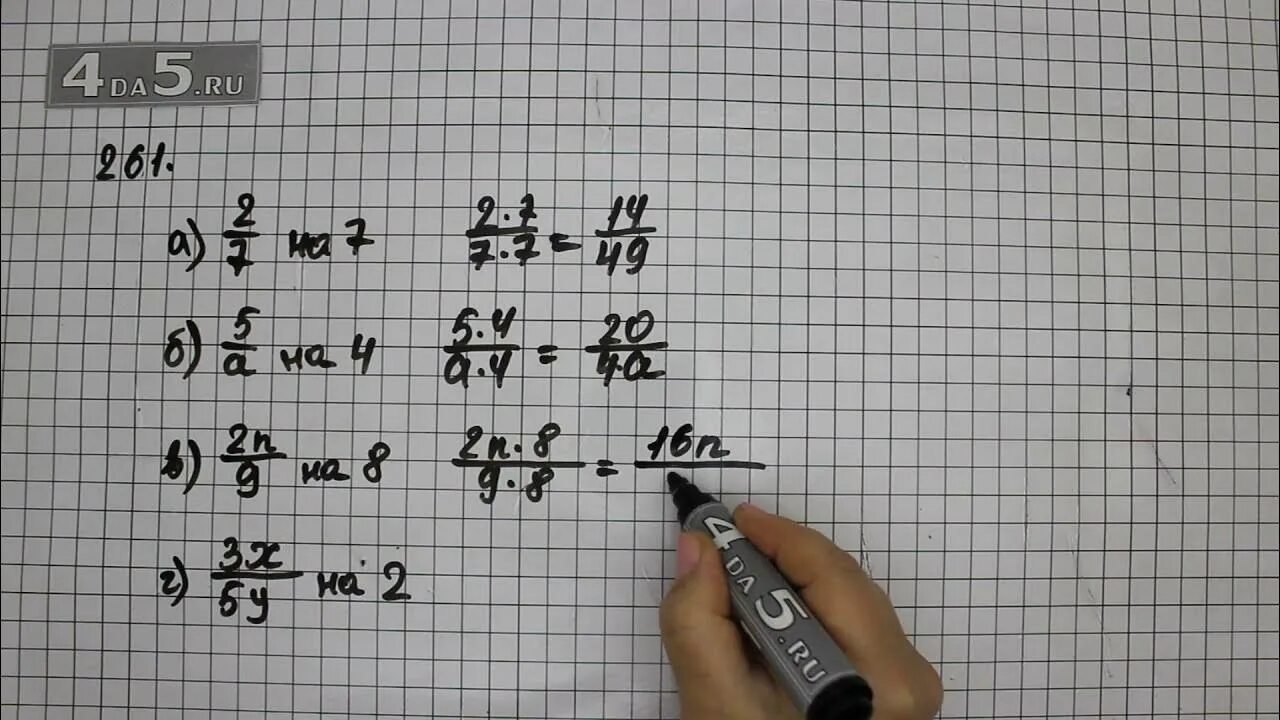 4DA5.RU
261.
а) 2/7 на 7 2·7/7·7 = 14/49
б) 5/a на 4 5·4/a·4 = 20/4·a
в) 2n/9 на 8 2n·8/9·8 = 16n/
г) 3x/5y на 2
4DA5.RU